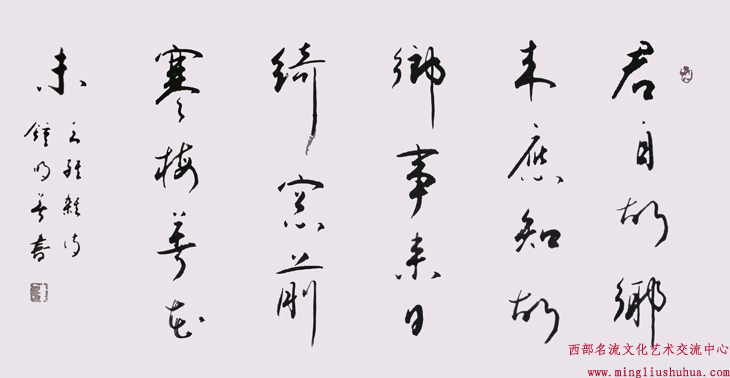 君自故鄉
来應知故
鄉事来日
綺窓前
寒梅著花
未
王維雜诗
鍾明善書
西部名流文化艺术交流中心
www.mingliushuhua.com